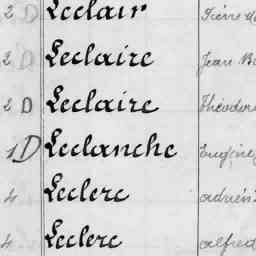 2 D Leclair Pierre
2 D Leclaire Jean
2 D Leclaire Théodore
1 D Leclanche Eugène
4 Leclerc adrien
4 Leclerc alfred